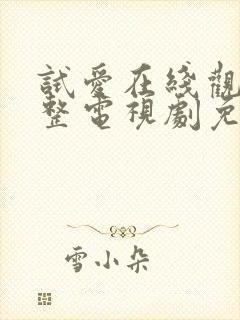 試愛在綫觀
整電視劇免
雪小朵